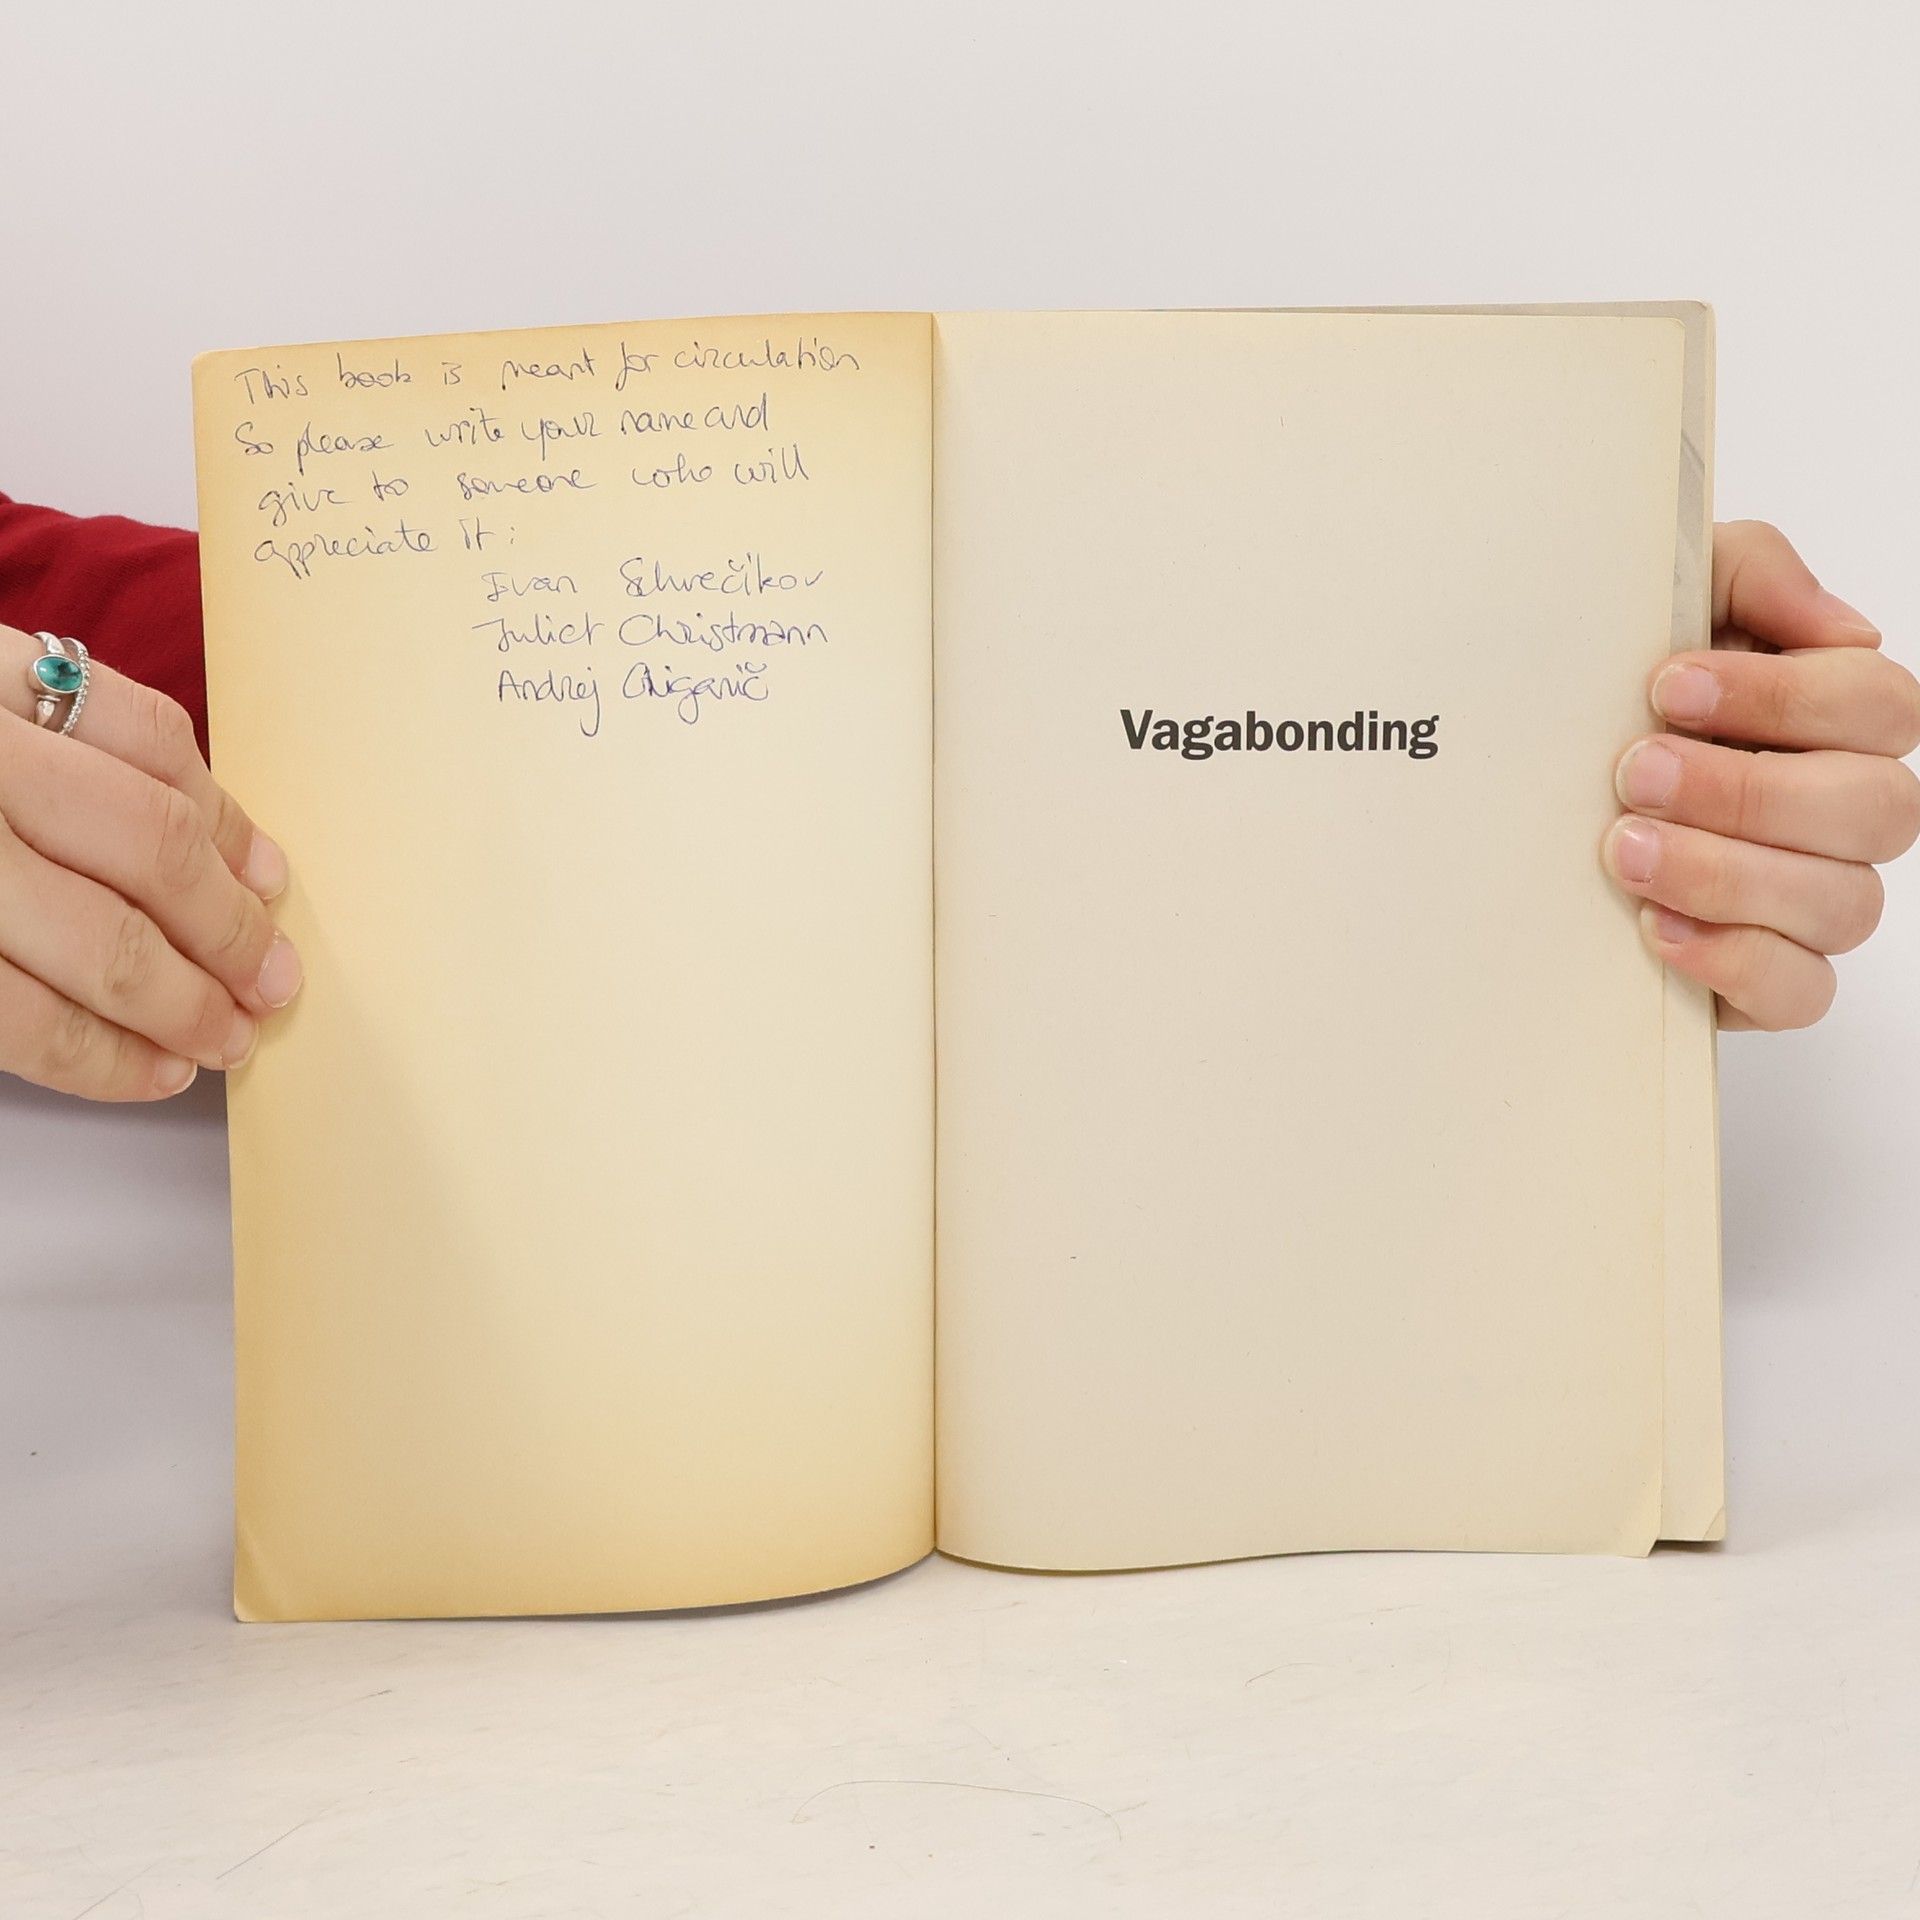 This book is meant for circulation
So please write your name and
give to someone who will
appreciate it:
Ivan
Juliet Christmann
Andrej
Vagabonding